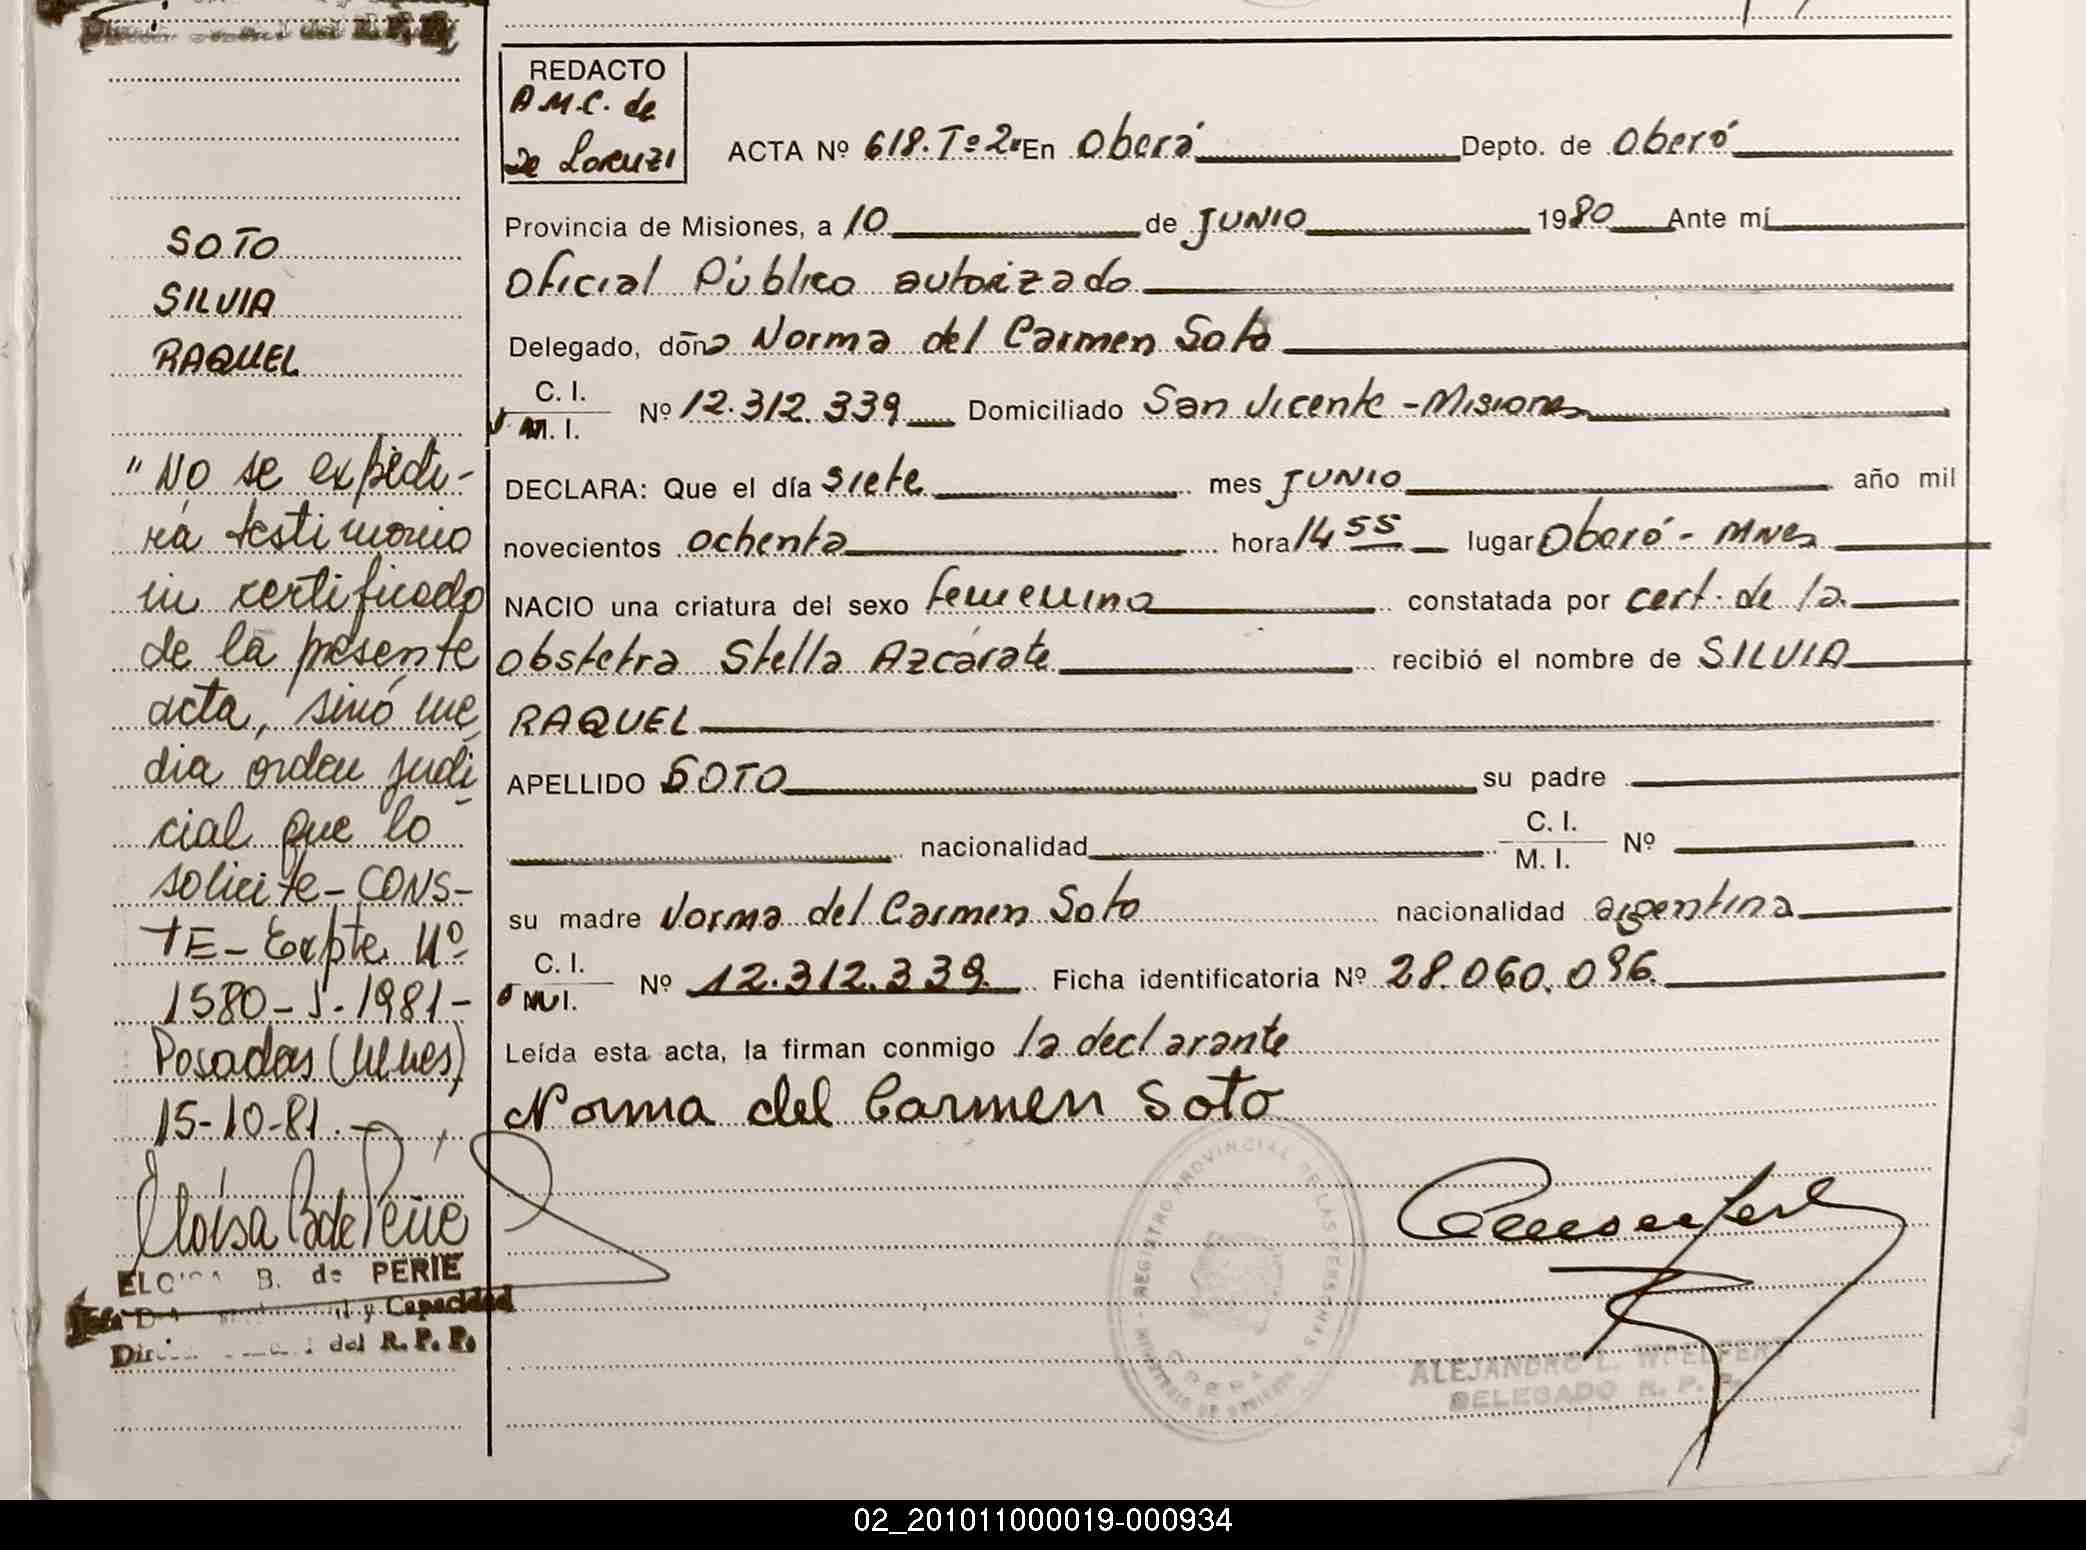 SOTO
SILVIA
RAQUEL
"No se expedi-
rá testimonio
ni certificado
de la presente
acta, sinó me
dia orden judi
cial que lo
solicite - CONS-
TE - Expte Nº
1580 - S - 1981 -
Posadas (Mnes)
15-10-81. -
ELOISA B. de PERIE
y Capacidad
del R. P. P.
REDACTO
A.M.C. de
De Lorenzi
ACTA Nº 618. Tº 2º En Oberá Depto. de Oberá
Provincia de Misiones, a 10 de JUNIO 1980 Ante mí
Oficial Público autorizado
Delegado, doña Norma del Carmen Soto
C. I.
M. I.
Nº 12.312.339 Domiciliado San Vicente - Misiones
DECLARA: Que el día siete mes JUNIO año mil
novecientos ochenta hora 14 55 lugar Oberá - Mnes
NACIO una criatura del sexo femenino constatada por cert. de la
obstetra Stella Azcárate recibió el nombre de SILVIA
RAQUEL
APELLIDO SOTO su padre
nacionalidad C. I. M. I. Nº
su madre Norma del Carmen Soto nacionalidad argentina
C. I.
M. I.
Nº 12.312.339 Ficha identificatoria Nº 28.060.096
Leída esta acta, la firman conmigo la declarante
Norma del Carmen Soto
REGISTRO PROVINCIAL DE LAS PERSONAS
ALEJANDRO L. WOELFERT
DELEGADO R. P. P.
02_201011000019-000934